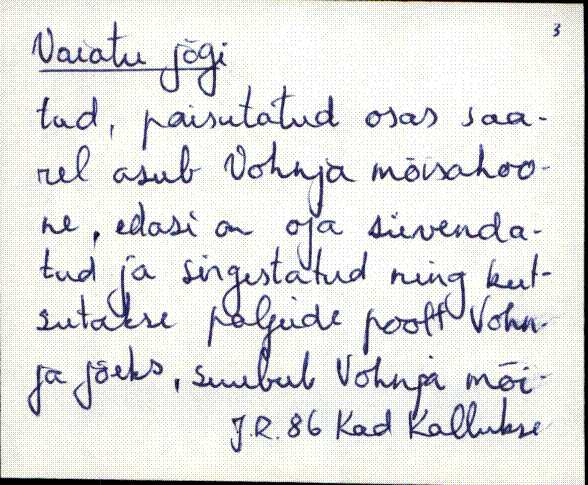 3
Vaiatu jõgi
tud, paisutatud osas saa-
rel asub Vohnja mõisahoo-
ne, edasi on oja süvenda-
tud ja singestatud ning kut-
sutakse paljude poolt Vohn-
ja jõeks, suubub Vohnja mõi-
J.R. 86 Kad Kallukse